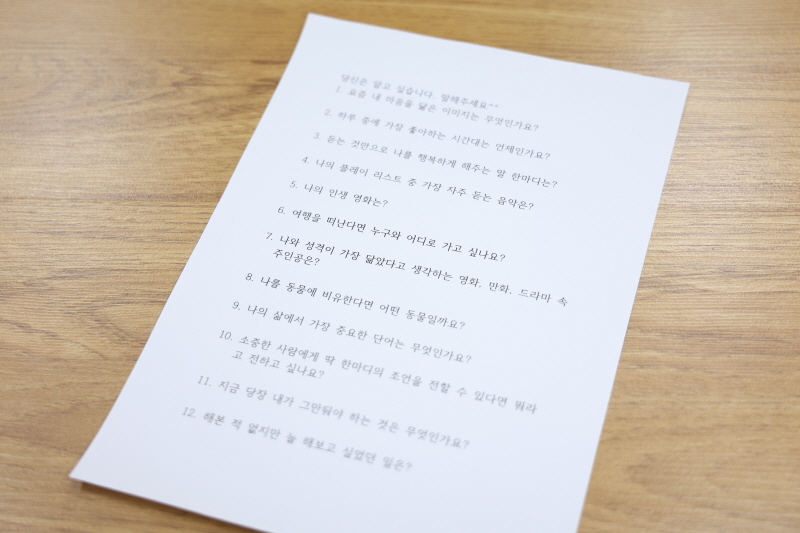 당신은 알고 싶습니다. 말해주세요^^
1. 요즘 내 마음을 닮은 이미지는 무엇인가요?
2. 하루 중에 가장 좋아하는 시간대는 언제인가요?
3. 듣는 것만으로 나를 행복하게 해주는 말 한마디는?
4. 나의 플레이 리스트 중 가장 자주 듣는 음악은?
5. 나의 인생 영화는?
6. 여행을 떠난다면 누구와 어디로 가고 싶나요?
7. 나와 성격이 가장 닮았다고 생각하는 영화, 만화, 드라마 속
주인공은?
8. 나를 동물에 비유한다면 어떤 동물일까요?
9. 나의 삶에서 가장 중요한 단어는 무엇인가요?
10. 소중한 사람에게 딱 한마디의 조언을 전할 수 있다면 뭐라
고 전하고 싶나요?
11. 지금 당장 내가 그만둬야 하는 것은 무엇인가요?
12. 해본 적 없지만 늘 해보고 싶었던 일은?